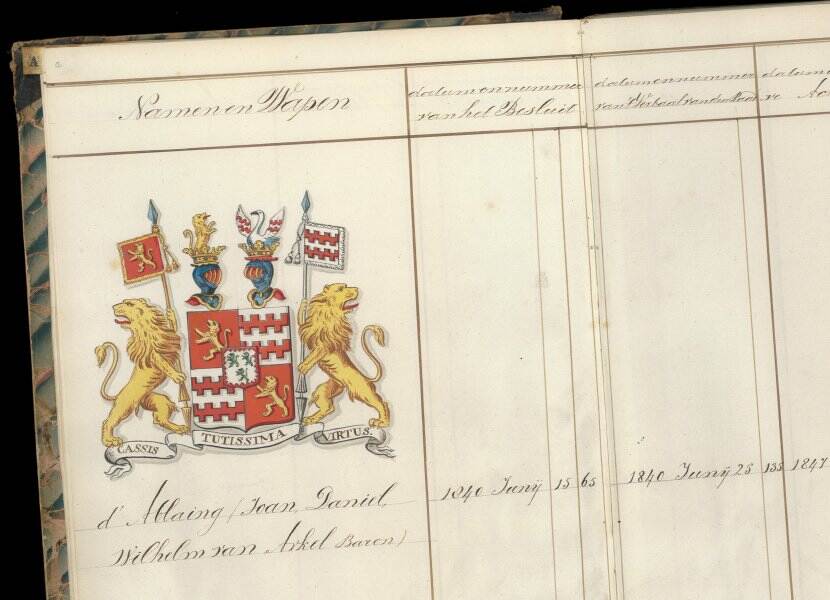 A
Namen en Wapen
datum en nummer
van het Besluit
datum en nummer
van 't Verbaal van den
datum
CASSIS TUTISSIMA VIRTUS.
d'Ablaing (Joan Daniel,
Wilhelm van Arkel Baron)
1840 Junij 15 65
1840 Junij 25 135
1847